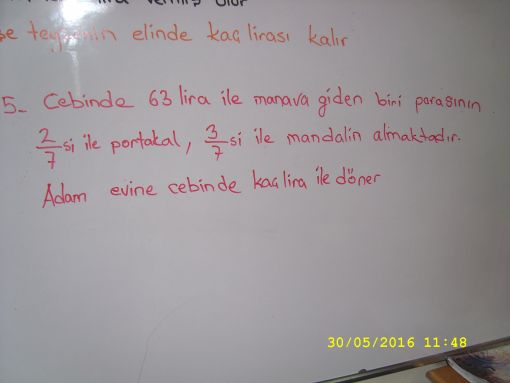 vermiş olur
se teyzenin elinde kaç lirası kalır
5- Cebinde 63 lira ile manava giden biri parasının
2/7 si ile portakal, 3/7 si ile mandalin almaktadır.
Adam evine cebinde kaç lira ile döner
30/05/2016 11:48